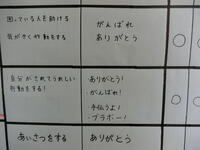 困っている人を助ける
気がきく行動をする
がんばれ
ありがとう
○
自分がされてうれしい
行動をする!
ありがとう!
がんばれ!
手伝うよ!
ブラボー!
○
あいさつをする
ありがとう